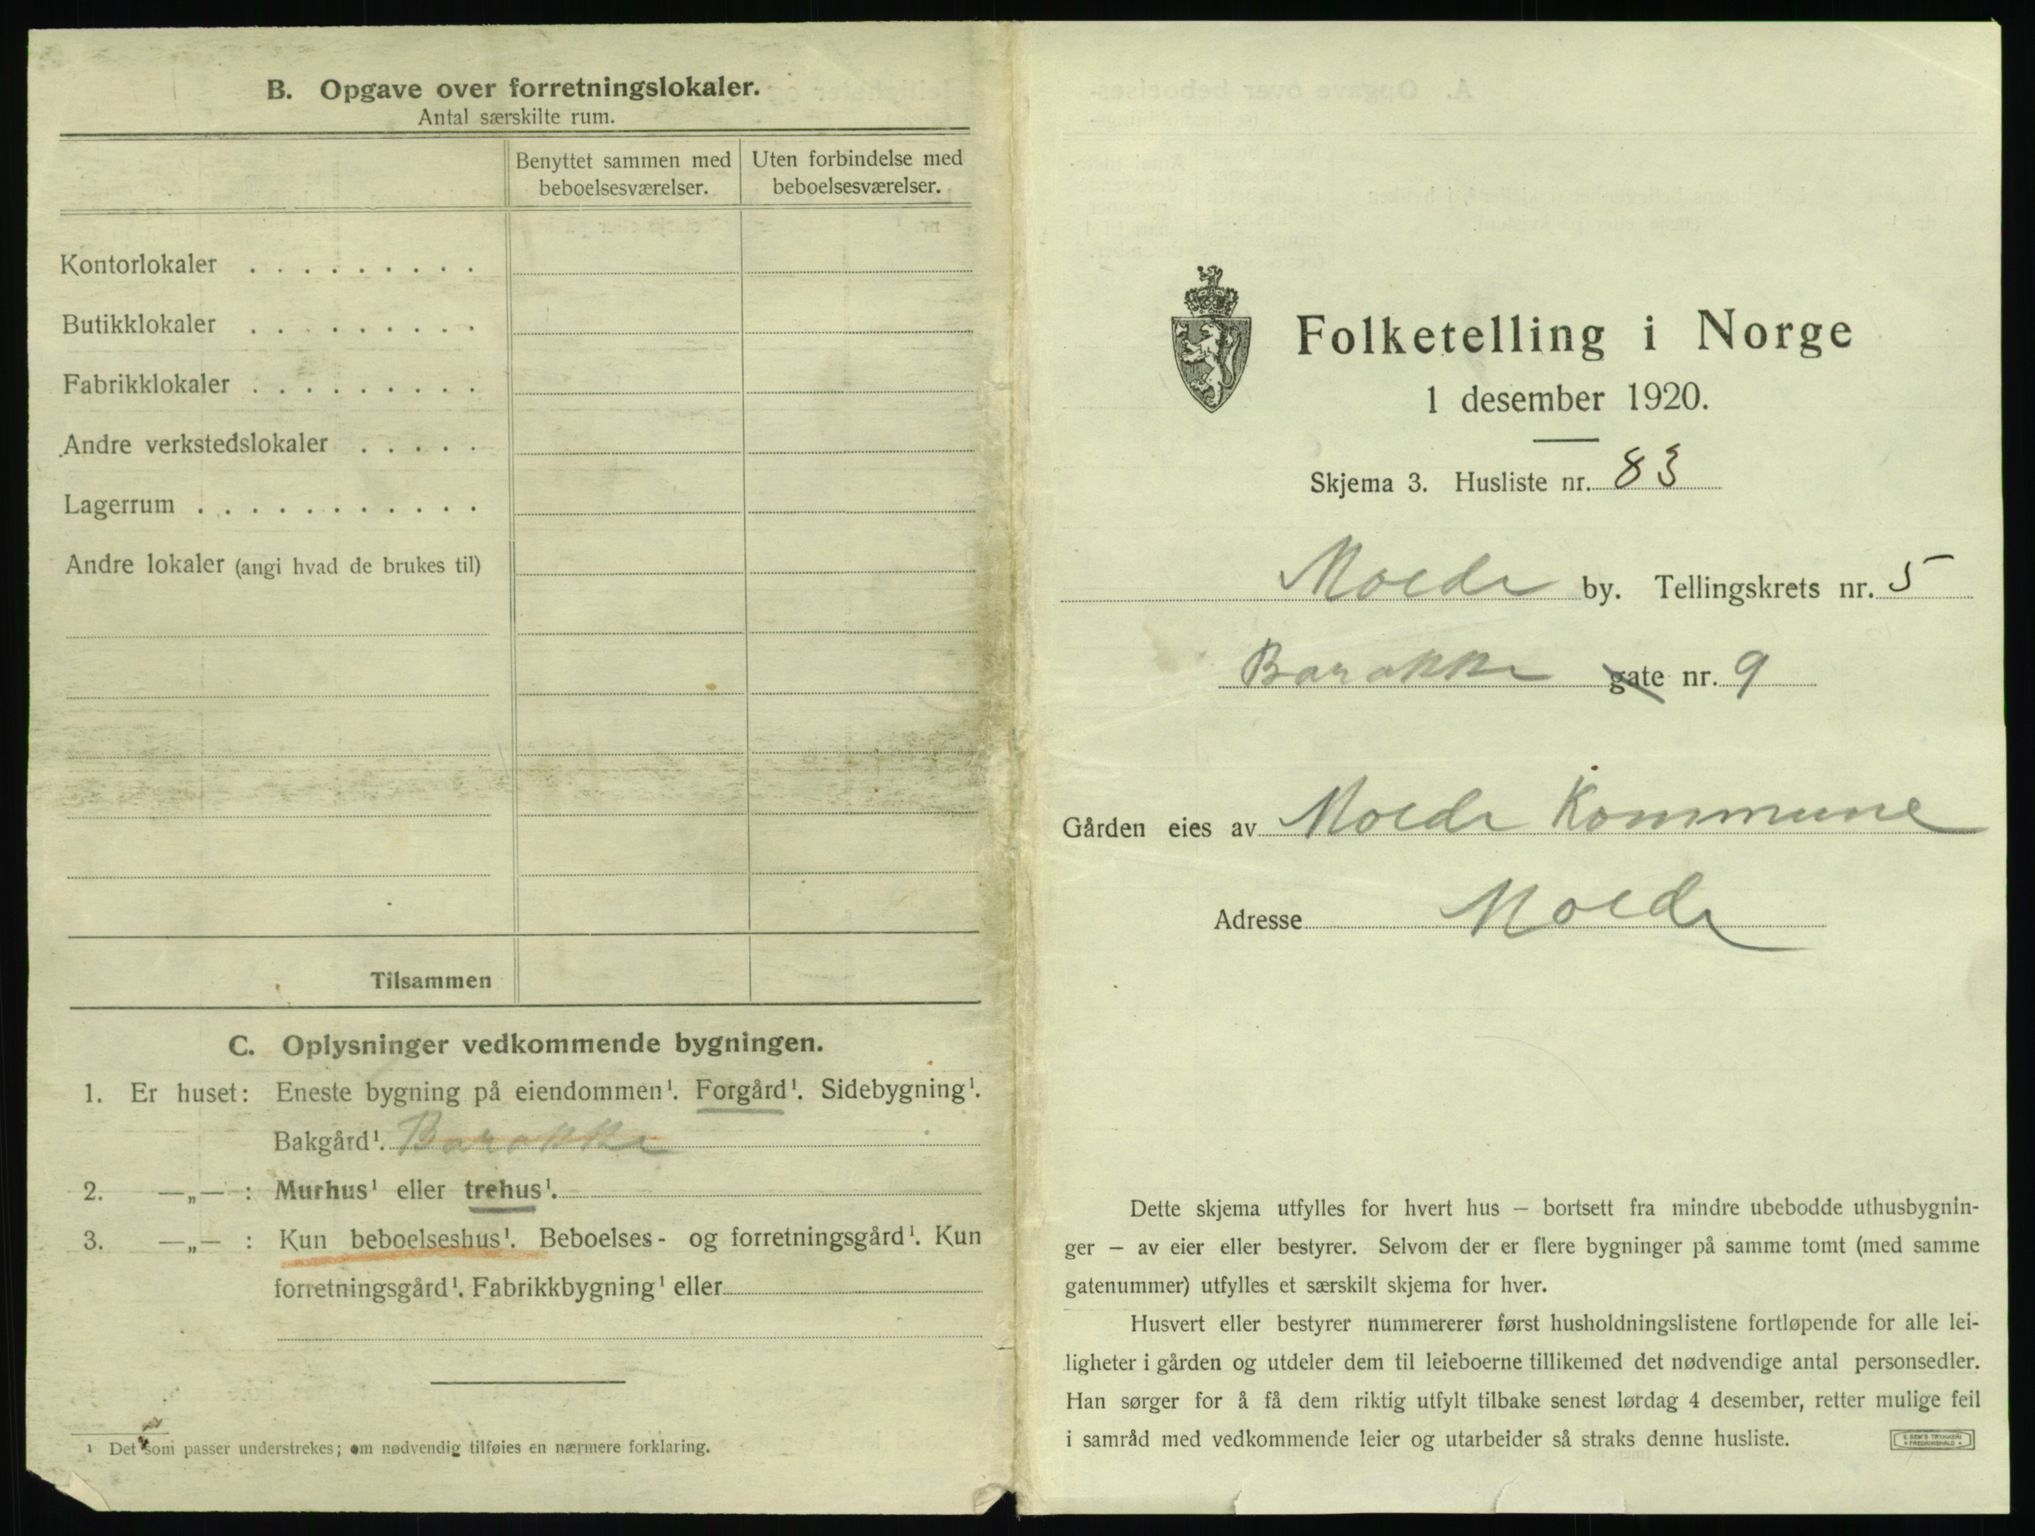 B. Opgave over forretningslokaler.
Antal særskilte rum.
Benyttet sammen med beboelsesværelser.
Uten forbindelse med beboelsesværelser.
Kontorlokaler . . . . . . . . .
Butikklokaler . . . . . . . . .
Fabrikklokaler . . . . . . . . .
Andre verkstedslokaler . . . . .
Lagerrum . . . . . . . . . . .
Andre lokaler (angi hvad de brukes til)
Tilsammen
C. Oplysninger vedkommende bygningen.
1. Er huset: Eneste bygning på eiendommen¹. Forgård¹. Sidebygning¹.
Bakgård¹. Barakke
2. —„— : Murhus¹ eller trehus¹.
3. —„— : Kun beboelseshus¹. Beboelses- og forretningsgård¹. Kun
forretningsgård¹. Fabrikkbygning¹ eller
¹ Det som passer understrekes; om nødvendig tilføies en nærmere forklaring.
Folketelling i Norge
1 desember 1920.
Skjema 3. Husliste nr. 83
Molde by. Tellingskrets nr. 5
Barakke gate nr. 9
Gården eies av Molde Kommune
Adresse Molde
Dette skjema utfylles for hvert hus — bortsett fra mindre ubebodde uthusbygnin-
ger — av eier eller bestyrer. Selvom der er flere bygninger på samme tomt (med samme
gatenummer) utfylles et særskilt skjema for hver.
Husvert eller bestyrer nummererer først husholdningslistene fortløpende for alle lei-
ligheter i gården og utdeler dem til leieboerne tillikemed det nødvendige antal personsedler.
Han sørger for å få dem riktig utfylt tilbake senest lørdag 4 desember, retter mulige feil
i samråd med vedkommende leier og utarbeider så straks denne husliste.